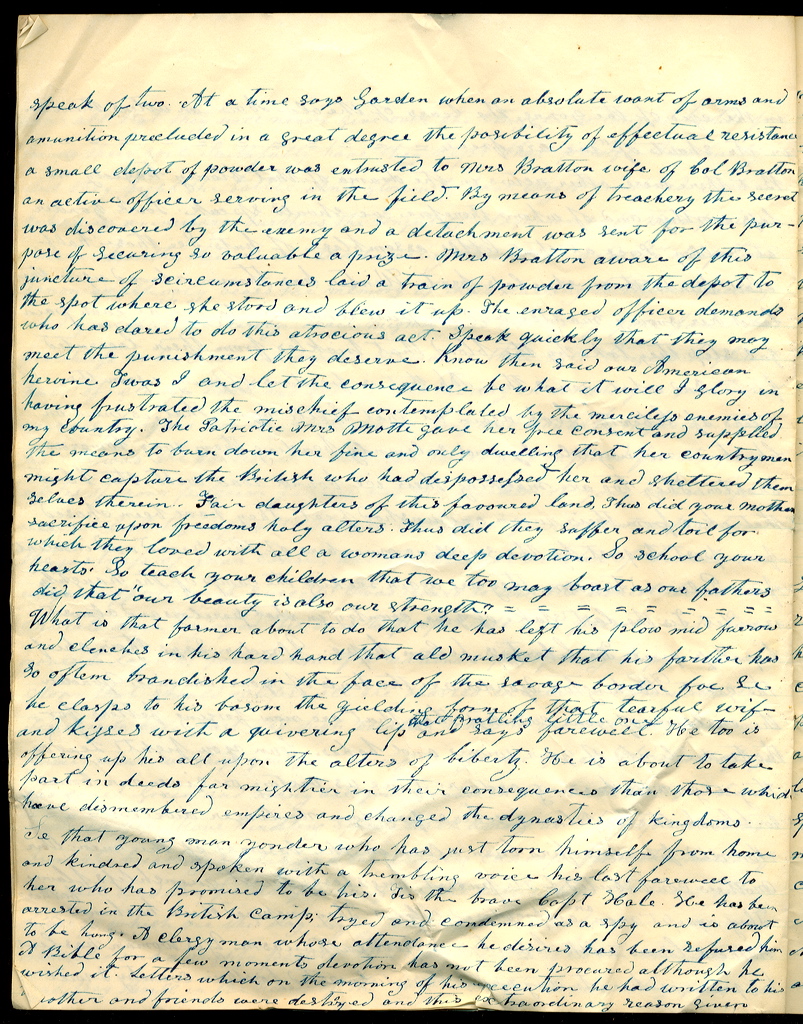 speak of two. At a time says Garden when an absolute want of arms and
amunition precluded in a great degree the posibility of effectual resistance
a small depot of powder was entrusted to Mrs Bratton wife of Col Bratton
an active officer serving in the field. By means of treachery the secret
was discovered by the enemy and a detachment was sent for the pur-
pose of securing so valuable a prize. Mrs Bratton aware of this
juncture of scircumstances laid a train of powder from the depot to
the spot where she stood and blew it up. The enraged officer demands
who has dared to do this atrocious act. Speak quickly that they may
meet the punishment they deserve. Know then said our American
heroine Twas I and let the consequence be what it will I glory in
having frustrated the mischief contemplated by the merciless enemies of
my country. The Patriotic Mrs Motte gave her free consent and supplied
the means to burn down her fine and only dwelling that her countrymen
might capture the British who had dispossessed her and sheltered them
selves therein. Fair daughters of this favoured land, Thus did your mothers
sacrifice upon freedoms holy alters. Thus did they suffer and toil for
which they loved with all a womans deep devotion. So school your
hearts. So teach your children that we too may boast as our fathers
did, that "our beauty is also our strength." = = = = = = = =
What is that farmer about to do that he has left his plow mid furrow
and clenches in his hard hand that old musket that his farther has
so oftem brandished in the face of the savage border foe Se
he clasps to his bosom the yielding form of that tearful wif
that pratling little one
and kisses with a quivering lip and says farewell. He too is
offering up his all upon the alters of liberty. He is about to take
part in deeds far mightier in their consequences than those which
have dismembered empires and changed the dynasties of kingdoms.
Se that young man yonder who has just torn himself from home
and kindred and spoken with a trembling voice his last farewell to
her who has promised to be his. Tis the brave Capt Hale. He has been
arrested in the British Camp; tryed and condemned as a spy and is about
to be hung. A clergyman whose attendance he desires has been refused him
A Bible for a few moments devotion has not been procured although he
wished it. Letters which on the morning of his execution he had written to his
mother and friends were destroyed and this extraordinary reason given